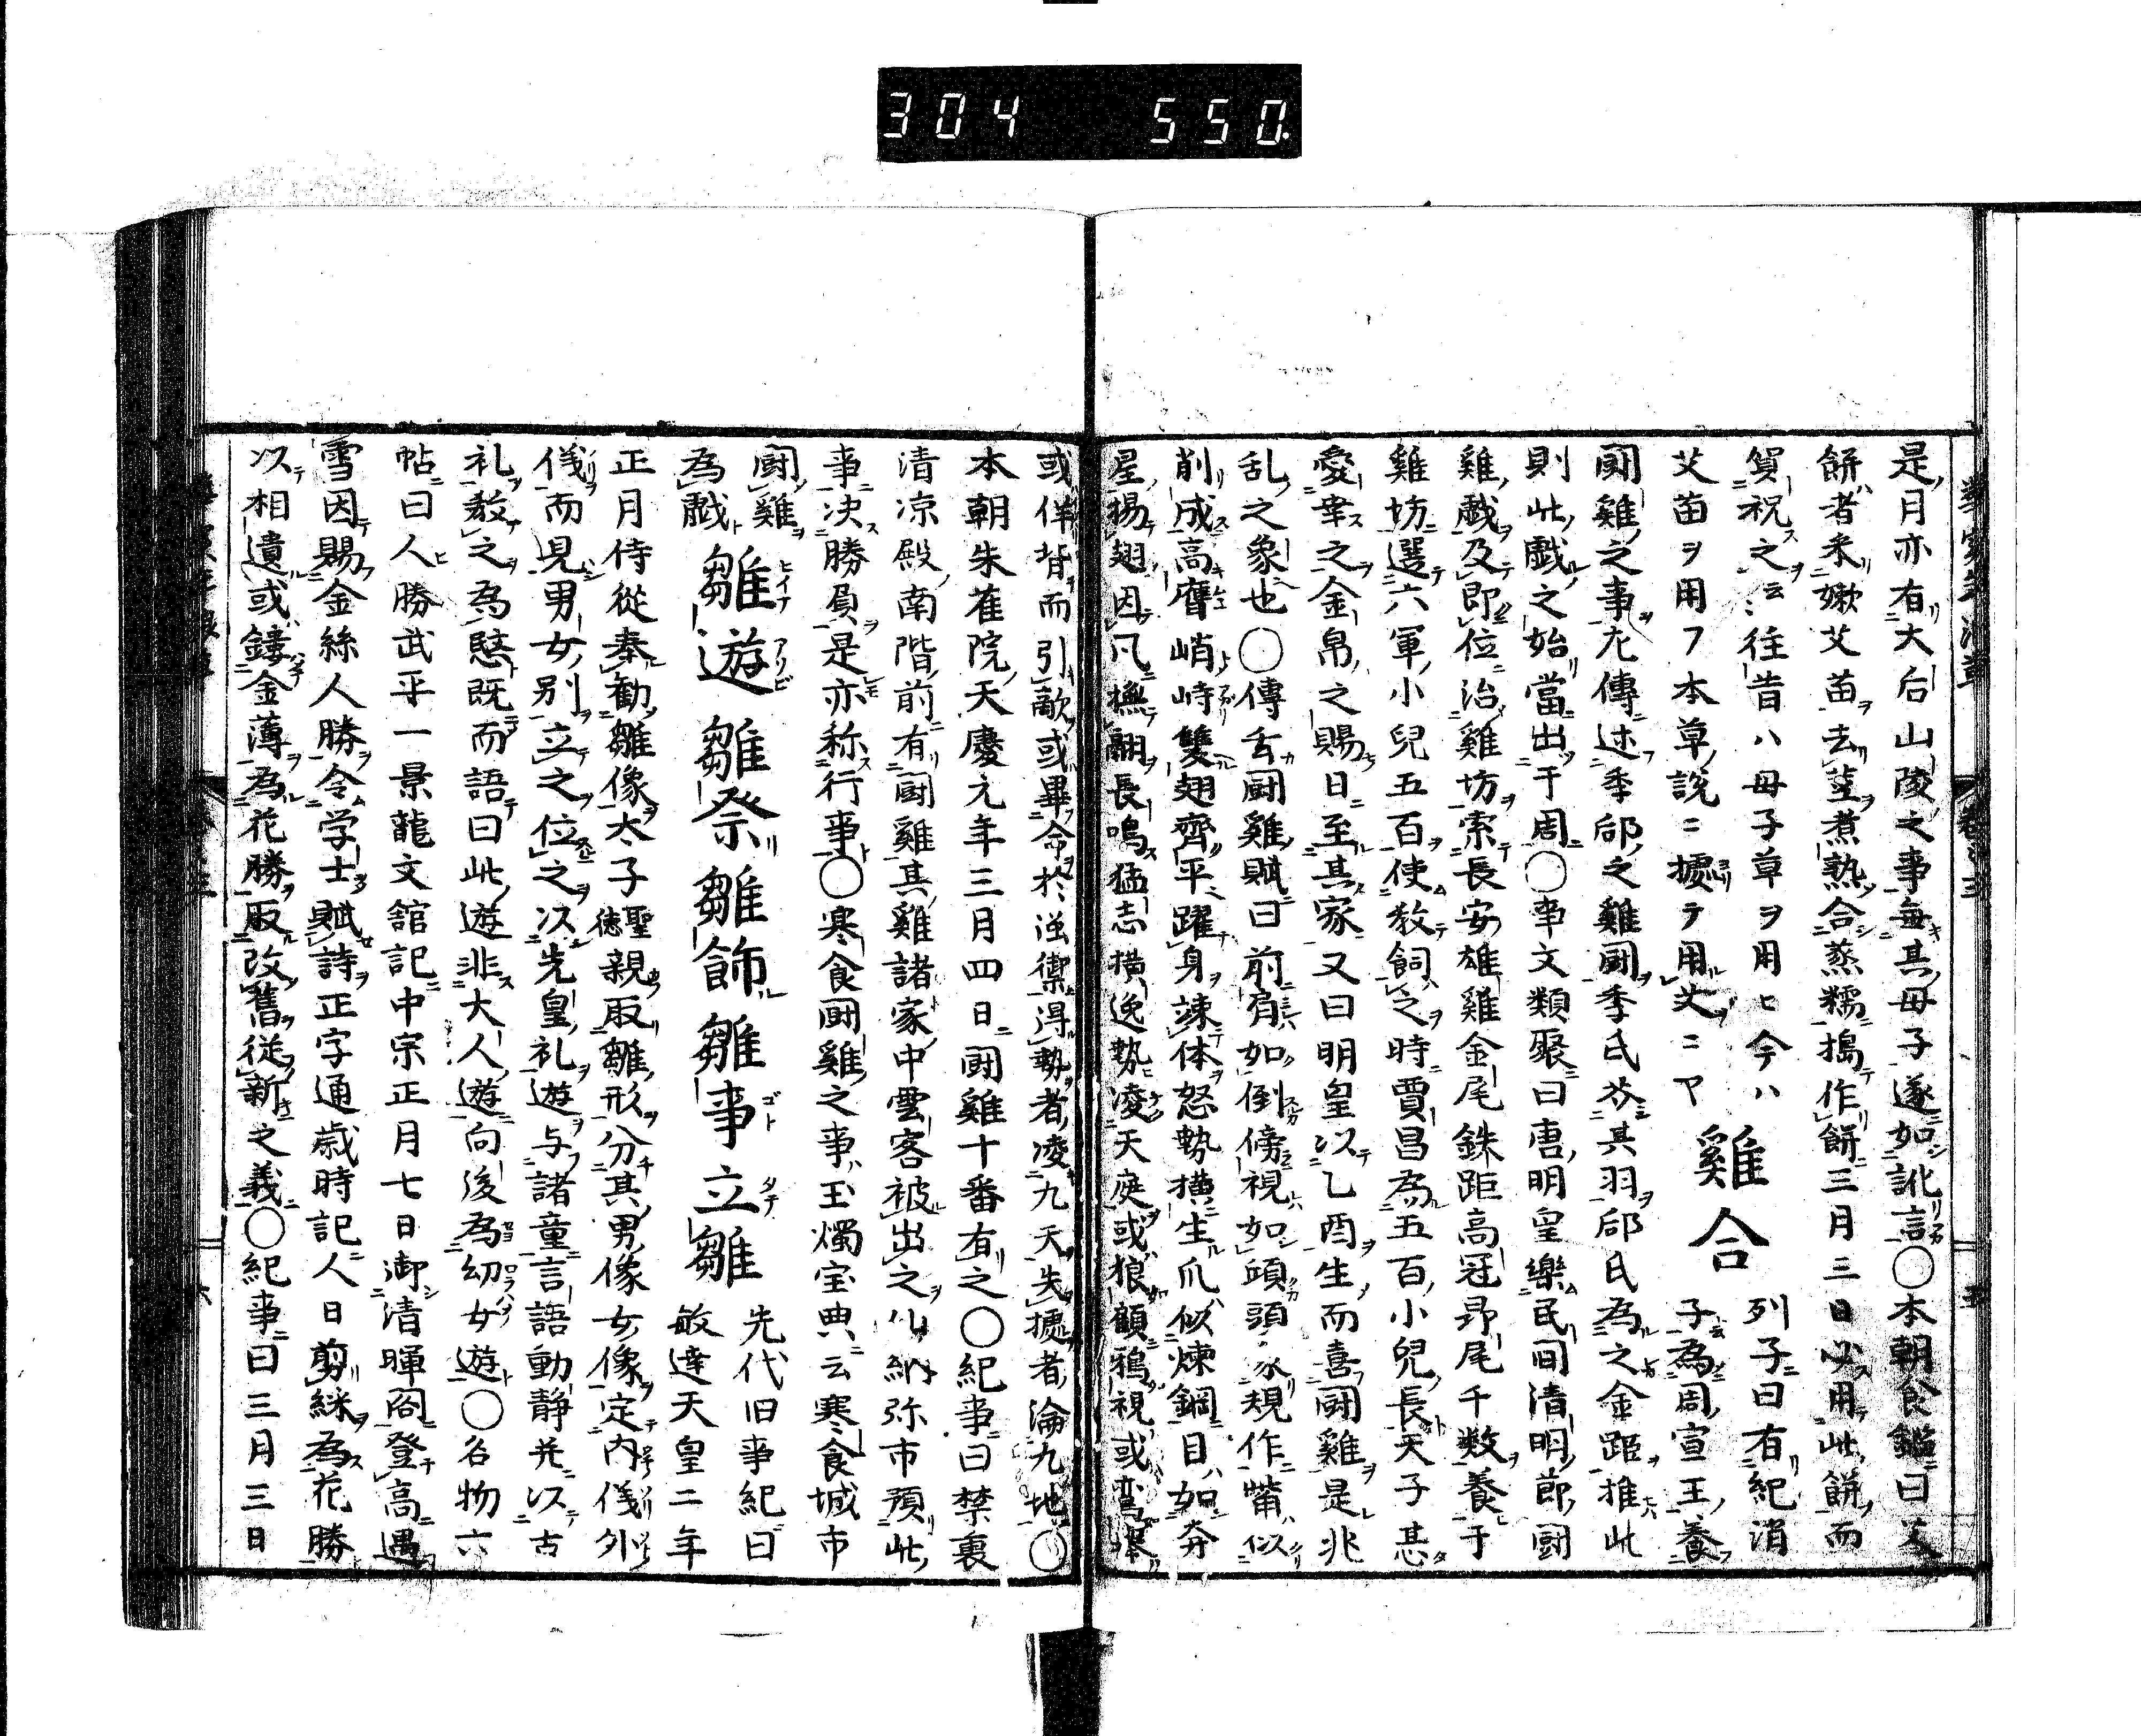 304 550
是月亦有大后山陵之事毎其母子遂如訛言〇本朝食鑑曰艾
餅者釆嫩艾苗去莖煮熟合蒸糯搗作餅三月三日必用此餅而
賀祝之云々往昔ハ母子草ヲ用ヒ今ハ
艾苗ヲ用フ本草説ニ據テ用艾ニヤ
雞合
列子曰有紀渻
子為周宣王養
闘雞之事尢傳述季郈之雞闘季氏芥其羽郈氏為之金距推此
則此戯之始當出于周〇事文類聚曰唐明皇樂民间清明節闘
雞戯及即位治雞坊索長安雄雞金尾銖距高冠昻尾千数養于
雞坊選六軍小兒五百使教飼之時賈昌為五百小兒長天子甚
愛幸之金帛之賜日至其家又曰明皇以乙酉生而喜闘雞是兆
乱之象也〇傳玄闘雞賦曰前肩如倒傍視如頭規作觜似
削成高膺峭峙雙翅齊平躍身竦体怒勢横生爪似煉鋼目如奔
星揚翅因凡撫翮長鳴猛志横逸勢凌天庭或狼顧鴉視或鸞
或佯背而引敵或畢命於強禦得勢者凌九天失據者淪九地〇
本朝朱雀院天慶元年三月四日闘雞十番有之〇紀事曰禁裏
清凉殿南階前有闘雞其雞諸家中雲客被出之以納弥市預此
事决勝負是亦称行事〇寒食闘雞之事玉燭宝典云寒食城市
闘雞
為戯
雛遊 雛祭 雛飾 雛事 立雛
先代旧事紀曰
敏達天皇二年
正月侍從奉勧雛像太子聖徳親取雛形分其男像女像定内儀外
儀而見男女别立之位之以先皇礼遊与諸童言語動静并以古
礼教之為既而語曰此遊非大人遊向後為幼女遊〇名物六
帖曰人勝武平一景龍文舘記中宗正月七日御清暉阁登高遇
雪因賜金絲人勝令学士賦詩正字通歳時記人日剪綵為花勝
以相遺或鏤金薄為花勝取改舊從新之義〇紀事曰三月三日